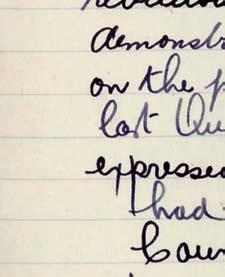 demonstr
on the p
last Qu
expressed
had
Coun